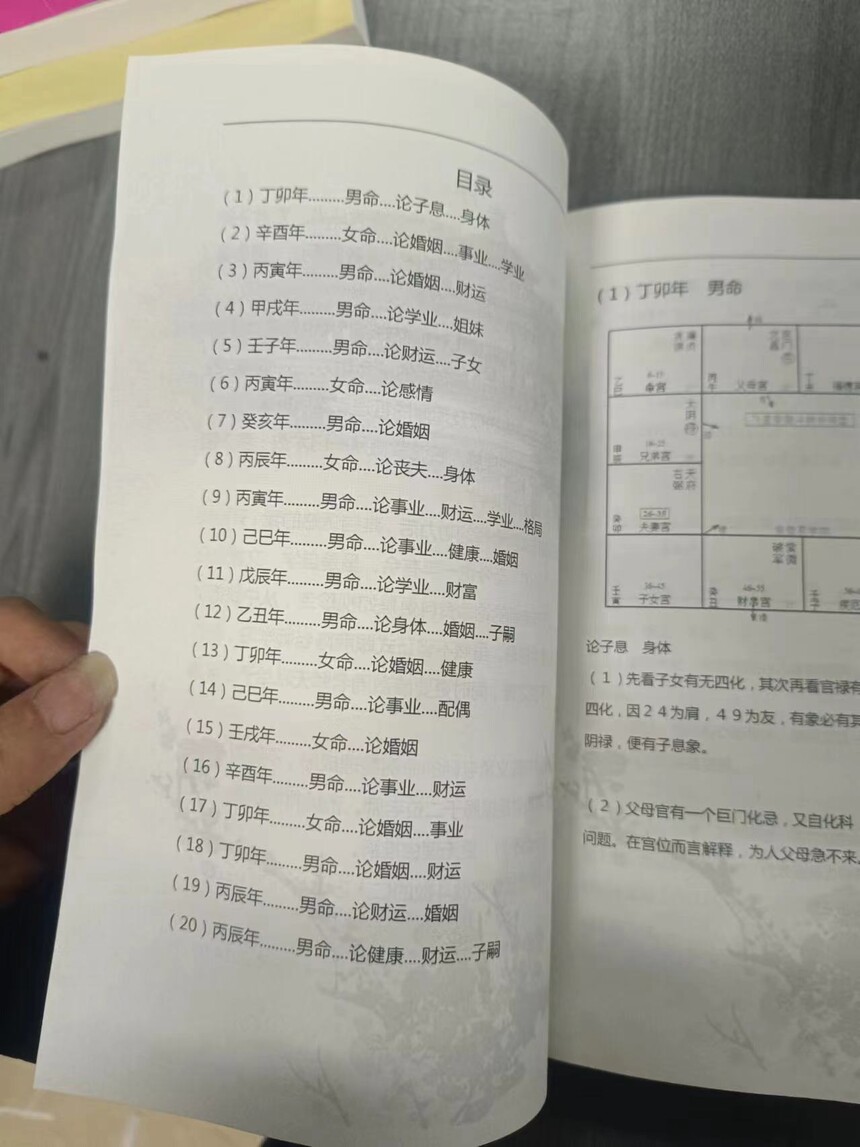 目录
(1)丁卯年.........男命....论子息....身体
(2)辛酉年.........女命....论婚姻....事业....学业
(3)丙寅年.........男命....论婚姻....财运
(4)甲戌年.........男命....论学业....姐妹
(5)壬子年.........男命....论财运....子女
(6)丙寅年.........女命....论感情
(7)癸亥年.........男命....论婚姻
(8)丙辰年.........女命....论丧夫....身体
(9)丙寅年.........男命....论事业....财运....学业...格局
(10)己巳年.........男命....论事业....健康....婚姻
(11)戊辰年.........男命....论学业....财富
(12)乙丑年.........男命....论身体....婚姻....子嗣
(13)丁卯年.........女命....论婚姻....健康
(14)己巳年.........男命....论事业....配偶
(15)壬戌年.........女命....论婚姻
(16)辛酉年.........男命....论事业....财运
(17)丁卯年.........女命....论婚姻....事业
(18)丁卯年.........男命....论婚姻....财运
(19)丙辰年.........男命....论财运....婚姻
(20)丙辰年.........男命....论健康....财运....子嗣
(1)丁卯年 男命
命宫
父母宫
兄弟宫
26-35
夫妻宫
36-45
子女宫
46-55
财帛宫
论子息 身体
(1)先看子女有无四化，其次再看官禄有
四化，因24为肩，49为友，有象必有其
阴禄，便有子息象。
(2)父母官有一个巨门化忌，又自化科
问题。在宫位而言解释，为人父母急不来